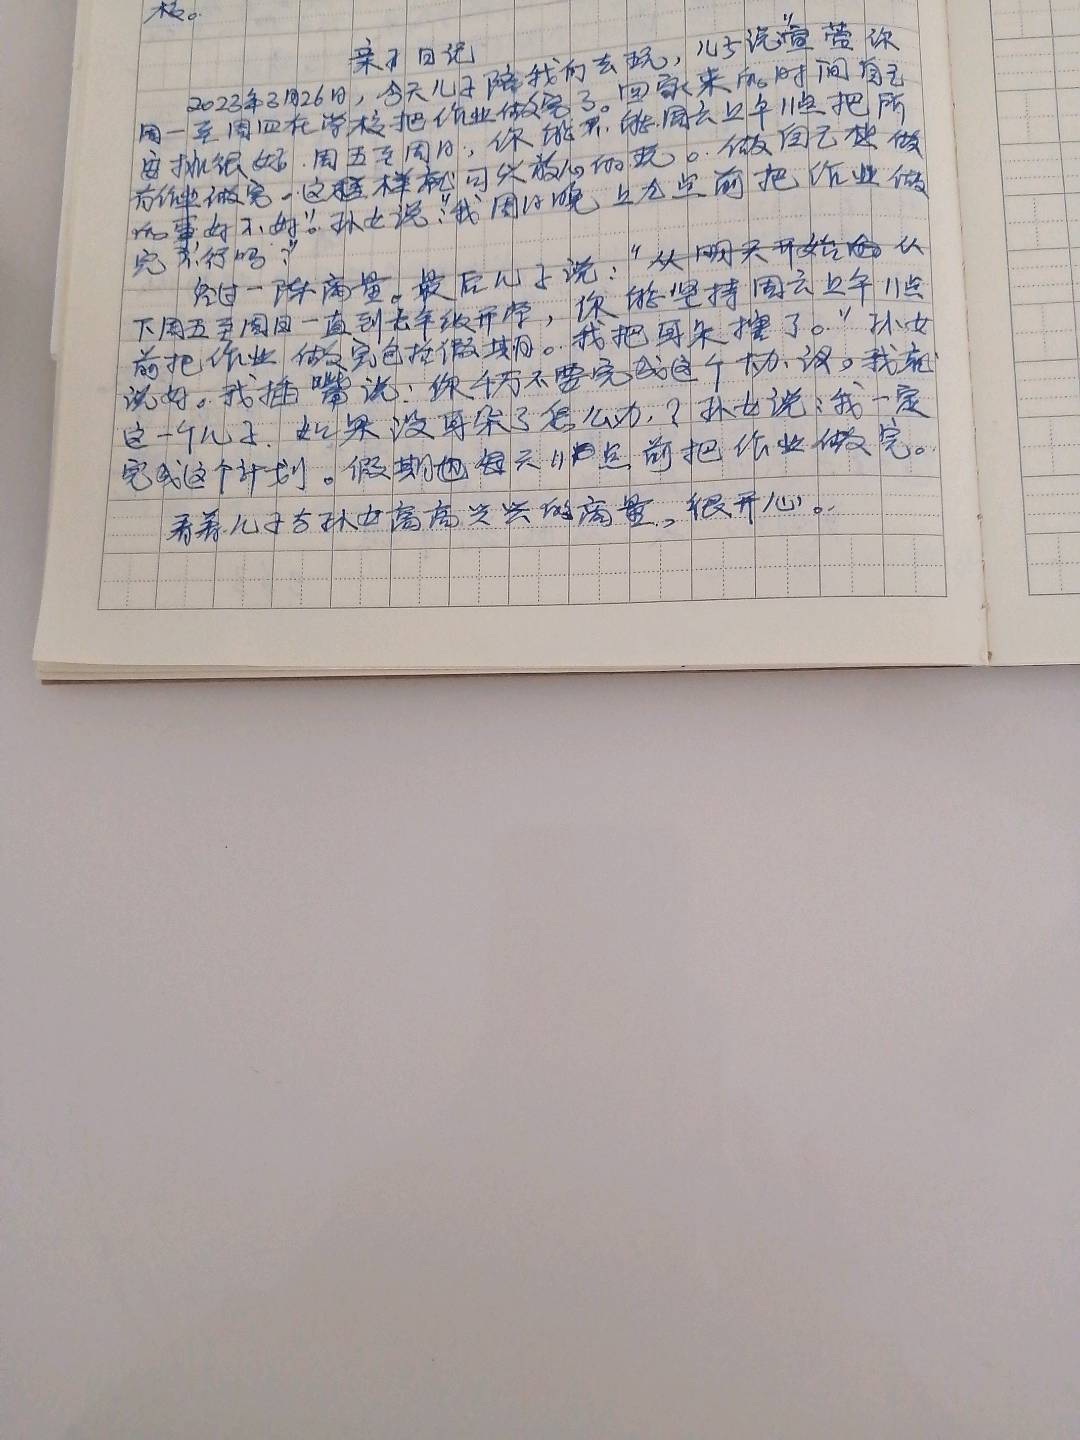 校。
亲子日记
2023年3月26日，今天儿子陪我们去玩，儿子说"萱萱你
周一至周四在学校把作业做完了。回家来的时间自己
安排很好.周五至周日，你能不能周六上午11点把所
有作业做完.这样就可以放心的玩。做自己想做
的事好不好"。孙女说："我周日晚上九点前把作业做
完不行吗？"
经过一阵商量。最后儿子说："从明天开始 从
下周五至周日一直到七年级开学，你能坚持周六上午11点
前把作业做完包括假期。我把耳朵揰了。"孙女
说好。我插嘴说：你千万不要完成这个协议。我就
这一个儿子.如果没耳朵了怎么办？孙女说：我一定
完成这个计划。假期也每天11点前把作业做完。
看着儿子与孙女高高兴兴的商量，很开心。